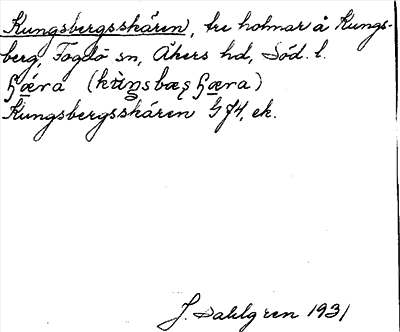 Kungsbergsskären, tre holmar å Kungs-
berg, Fogdö sn, Åkers hd, Söd. l.
ɧǽra (kùŋsbæʂɧæra)
Kungsbergsskären G 74, ek.
J. Dahlgren 1931